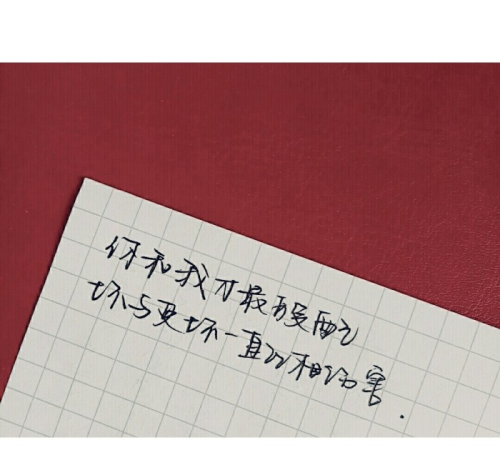 你和我才最般配
坏与更坏一直以相伤害.